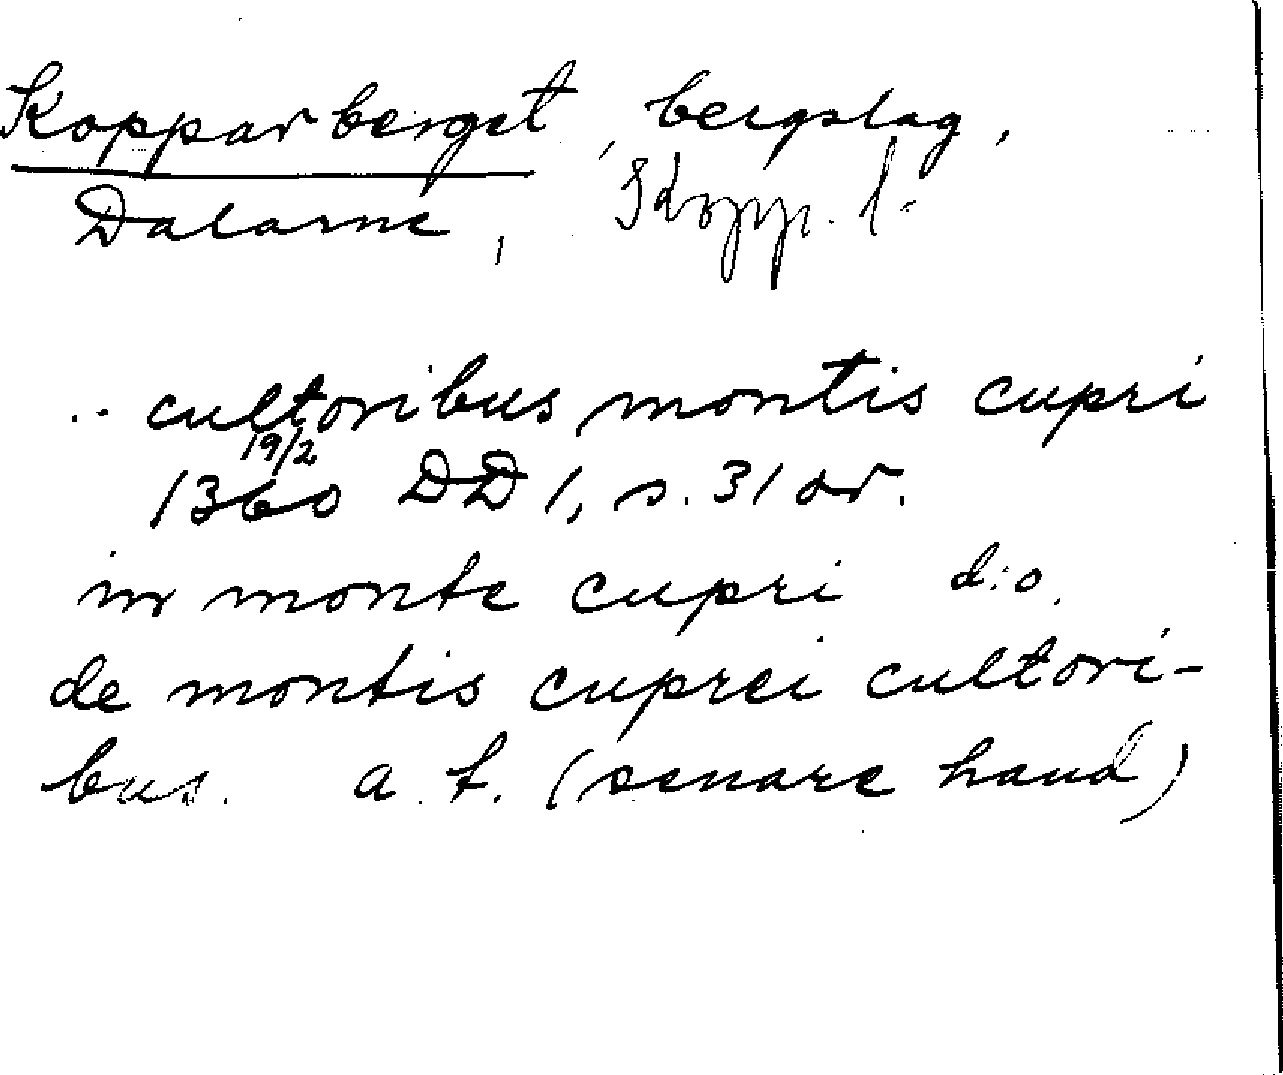 Kopparberget, bergslag,
Dalarne, Kopp. l.
.. cultoribus montis cupri
19/2
1360 DD 1, s. 31 or.
in monte cupri d:o.
de montis cuprei cultori-
bus. a. t. (senare hand)